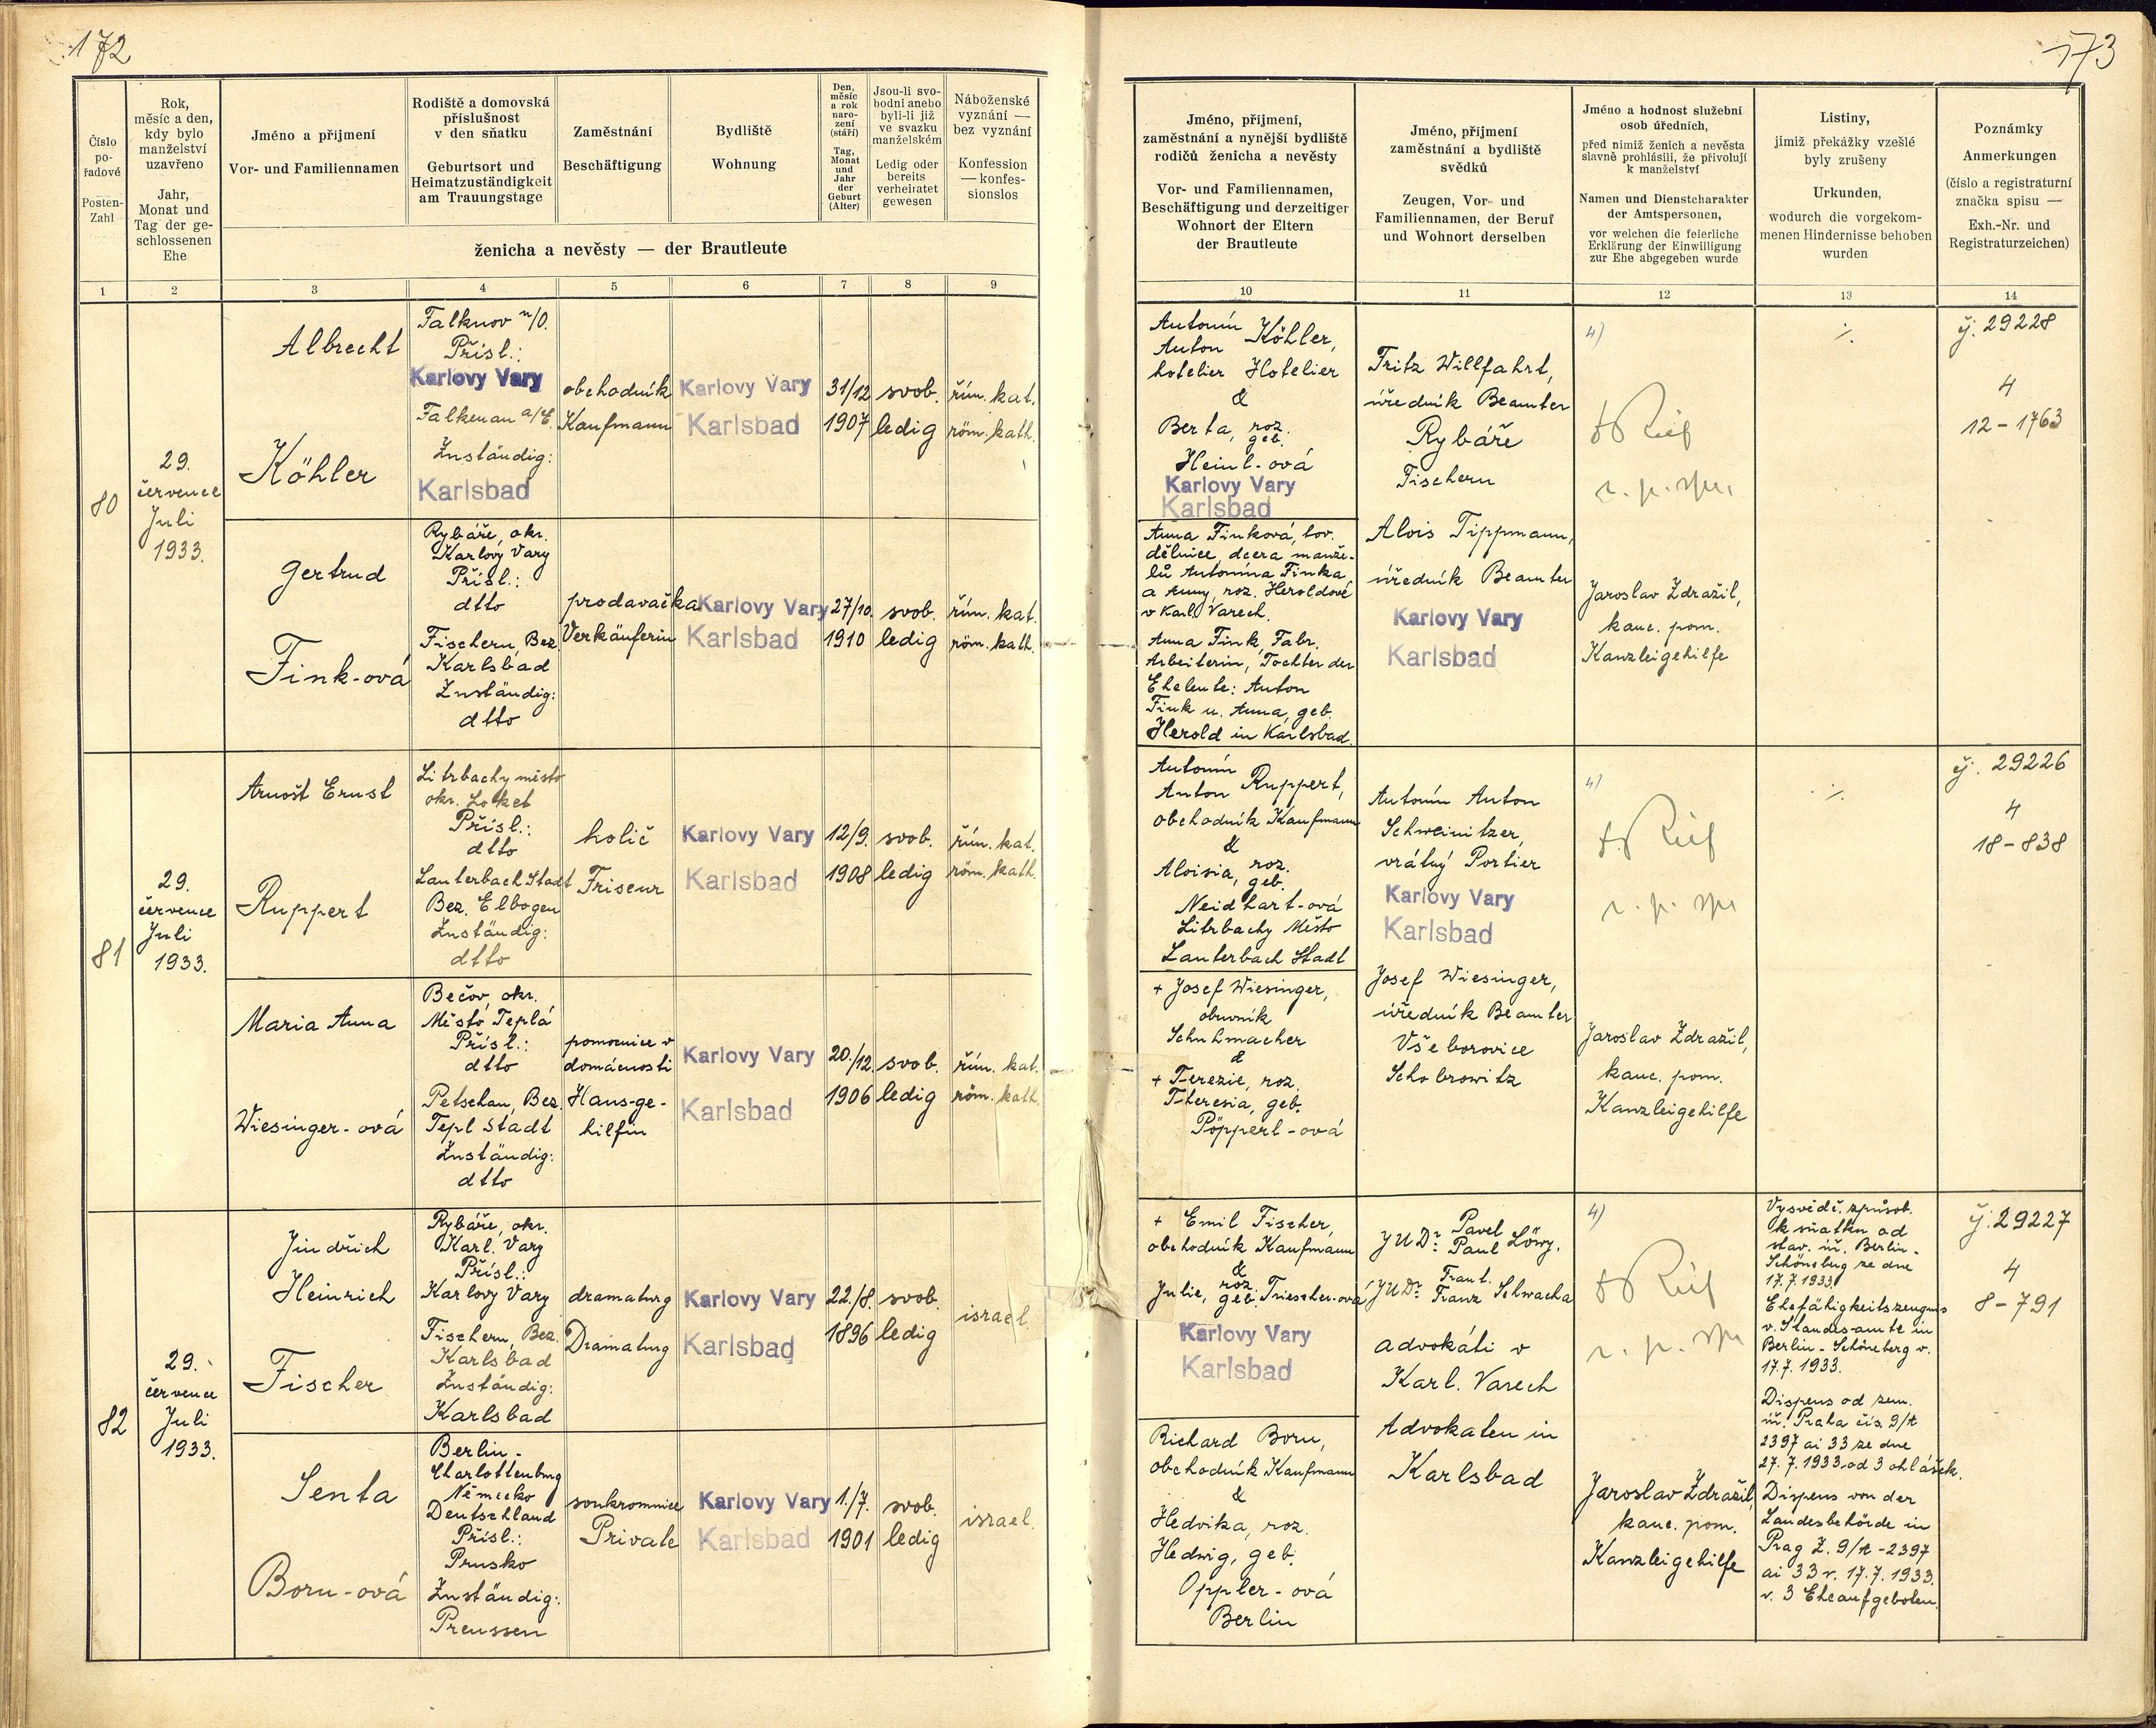 172
Číslo
po-
řadové
Posten-
Zahl
Rok,
měsíc a den,
kdy bylo
manželství
uzavřeno
Jahr,
Monat und
Tag der ge-
schlossenen
Ehe
Jméno a příjmení
Vor- und Familiennamen
Rodiště a domovská
příslušnost
v den sňatku
Geburtsort und
Heimatzuständigkeit
am Trauungstage
Zaměstnání
Beschäftigung
Bydliště
Wohnung
Den,
měsíc
a rok
naro-
zení
(stáří)
Tag,
Monat
und
Jahr
der
Geburt
(Alter)
Jsou-li svo-
bodni anebo
byli-li již
ve svazku
manželském
Ledig oder
bereits
verheiratet
gewesen
Náboženské
vyznání —
bez vyznání
Konfession
— konfes-
sionslos
ženicha a nevěsty — der Brautleute
1 2 3 4 5 6 7 8 9
80
29.
července
Juli
1933.
Albrecht
Köhler
Falknov n/O.
Přísl.:
Karlovy Vary
Falkenau a/E.
Zuständig:
Karlsbad
obchodník
Kaufmann
Karlovy Vary
Karlsbad
31/12
1907
svob.
ledig
řím. kat.
röm. kath.
Gertrud
Fink-ová
Rybáře, okr.
Karlovy Vary
Přísl.:
dtto
Fischern, Bez.
Karlsbad
Zuständig:
dtto
prodavačka
Verkäuferin
Karlovy Vary
Karlsbad
27/10.
1910
svob.
ledig
řím. kat.
röm. kath.
81
29.
července
Juli
1933.
Arnošt Ernst
Ruppert
Litrbachy město
okr. Loket
Přísl.:
dtto
Lauterbach Stadt
Bez. Elbogen
Zuständig:
dtto
holič
Friseur
Karlovy Vary
Karlsbad
12/9.
1908
svob.
ledig
řím. kat.
röm. kath.
Maria Anna
Wiesinger-ová
Bečov, okr.
Město Teplá
Přísl.:
dtto
Petschau, Bez.
Tepl Stadt
Zuständig:
dtto
pomocnice v
domácnosti
Haus-ge-
hilfin
Karlovy Vary
Karlsbad
20./12.
1906
svob.
ledig
řím. kat.
röm. kath.
82
29.
července
Juli
1933.
Jindřich
Heinrich
Fischer
Rybáře, okr.
Karl. Vary
Přísl.:
Karlovy Vary
Fischern, Bez.
Karlsbad
Zuständig:
Karlsbad
dramaturg
Dramaturg
Karlovy Vary
Karlsbad
22./8.
1896
svob.
ledig
israel.
Senta
Born-ová
Berlin-
Charlottenburg
Německo
Deutschland
Přísl.:
Prusko
Zuständig:
Preussen
soukromnice
Private
Karlovy Vary
Karlsbad
1./7.
1901
svob.
ledig
israel.
173
Jméno, příjmení,
zaměstnání a nynější bydliště
rodičů ženicha a nevěsty
Vor- und Familiennamen,
Beschäftigung und derzeitiger
Wohnort der Eltern
der Brautleute
Jméno, příjmení
zaměstnání a bydliště
svědků
Zeugen, Vor- und
Familiennamen, der Beruf
und Wohnort derselben
Jméno a hodnost služební
osob úředních,
před nimiž ženich a nevěsta
slavně prohlásili, že přivolují
k manželství
Namen und Dienstcharakter
der Amtspersonen,
vor welchen die feierliche
Erklärung der Einwilligung
zur Ehe abgegeben wurde
Listiny,
jimiž překážky vzešlé
byly zrušeny
Urkunden,
wodurch die vorgekom-
menen Hindernisse behoben
wurden
Poznámky
Anmerkungen
(číslo a registraturní
značka spisu —
Exh.-Nr. und
Registraturzeichen)
10 11 12 13 14
Antonín
Anton Köhler,
hotelier Hotelier
&
Berta, roz.
geb.
Heinl-ová
Karlovy Vary
Karlsbad
Anna Finková, tov.
dělnice, dcera manže-
lů Antonína Finka
a Anny, roz. Heroldové
v Karl. Varech.
Anna Fink, Fabr.
Arbeiterin, Tochter der
Eheleute: Anton
Fink u. Anna, geb.
Herold in Karlsbad.
Fritz Willfahrt,
úředník Beamter
Rybáře
Fischern
Alois Tippmann,
úředník Beamter
Karlovy Vary
Karlsbad
4)
Jaroslav Zdražil,
kanc. pom.
Kanzleigehilfe
./.
čj. 29228
4
12-1763
Antonín
Anton Ruppert,
obchodník Kaufmann
&
Aloisia, roz.
geb.
Neidhart-ová
Litrbachy Město
Lauterbach Stadt
+ Josef Wiesinger,
obuvník
Schuhmacher
&
+ Terezie, roz.
Theresia, geb.
Pöpperl-ová
Antonín Anton
Schweinitzer,
vrátný Portier
Karlovy Vary
Karlsbad
Josef Wiesinger,
úředník Beamter
Všeborovice
Schobrowitz
4)
Jaroslav Zdražil,
kanc. pom.
Kanzleigehilfe
./.
čj. 29226
4
18-838
+ Emil Fischer,
obchodník Kaufmann
&
Julie, roz.
geb. Triescher-ová
Karlovy Vary
Karlsbad
Richard Born,
obchodník Kaufmann
&
Hedvika, roz.
Hedwig, geb.
Oppler-ová
Berlin
JUDr. Pavel
Paul Löwy,
JUDr. Frant.
Franz Schwacha
advokáti v
Karl. Varech
Advokaten in
Karlsbad
4)
Jaroslav Zdražil,
kanc. pom.
Kanzleigehilfe
Vysvědč. způsob.
k sňatku od
stav. úř. Berlin-
Schöneberg ze dne
17.7.1933
Ehefähigkeitszeugnis
v. Standesamte in
Berlin-Schöneberg v.
17.7.1933.
Dispens od zem.
úř. Praha čís. 9/t
2397 ai 33 ze dne
27.7.1933 od 3 ohlášek.
Dispens von der
Landesbehörde in
Prag Z. 9/t-2397
ai 33 v. 17.7.1933.
v. 3 Eheaufgeboten.
čj. 29227
4
8-791